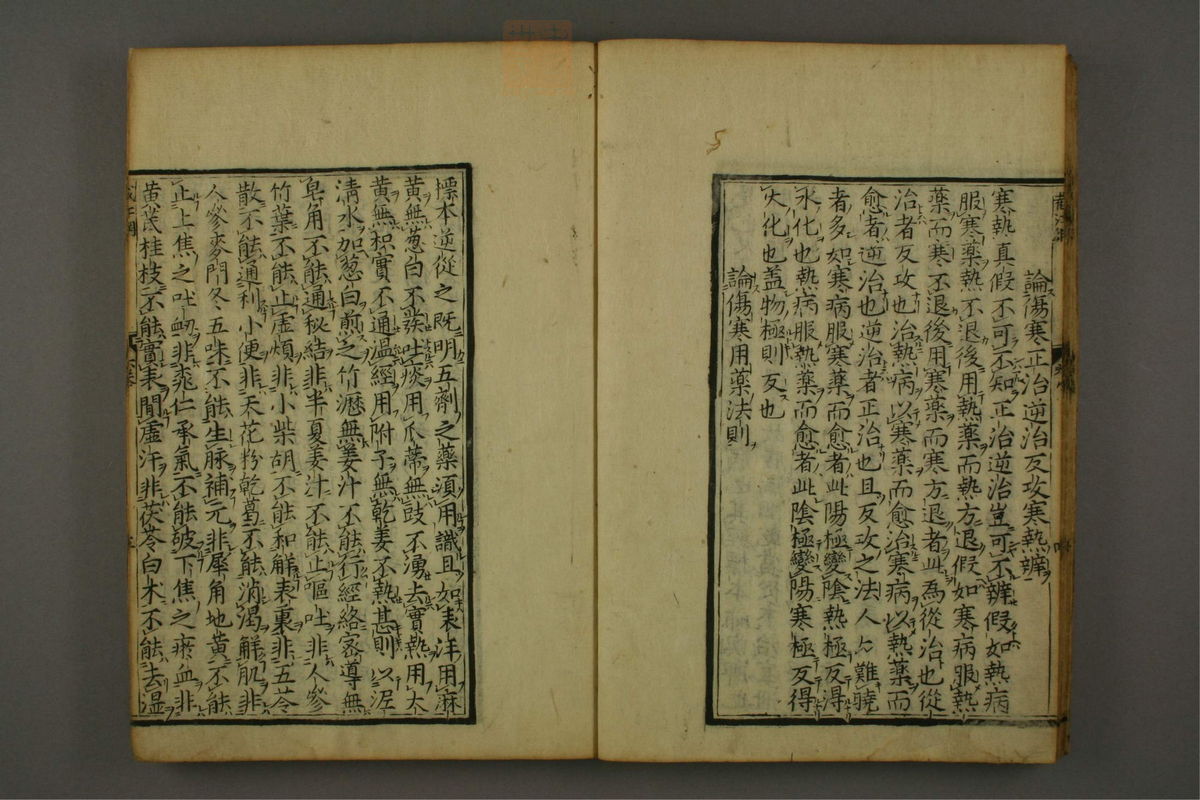 論傷寒正治逆治反攻寒熱辨
寒熱真假不可不知正治逆治豈可不辨假如熱病
服寒藥熱不退後用熱藥而熱方退假如寒病服熱
藥而寒不退後用寒藥而寒方退者此為從治也從
治者反攻也治熱病以寒藥而愈治寒病以熱藥而
愈者逆治也逆治者正治也且反攻之法人占難曉
者多如寒病服寒藥而愈者此陽極變陰熱極反得
水化也熱病服熱藥而愈者此陰極變陽寒極反得
火化也盖物極則反也
論傷寒用藥法則
摽本逆從之既明五劑之藥須用識且如表汗用麻
黄無葱白不發吐痰用瓜蒂無豉不湧去實熱用大
黄無枳實不通温經用附子無乾姜不熱甚則以泥
清水加葱白煎之竹瀝無姜汁不能行經絡宻導無
皂角不能通秘結非半夏姜汁不能止嘔吐非人參
竹葉不能止虚煩非小柴胡不能和解表裏非五苓
散不能通利小便非天花粉乾葛不能消渇解肌非
人參麥門冬五味不能生脉補元非犀角地黄不能
止上焦之吐衂非桃仁承氣不能破下焦之瘀血非
黄芪桂枝不能實表間虚汗非茯苓白术不能去湿